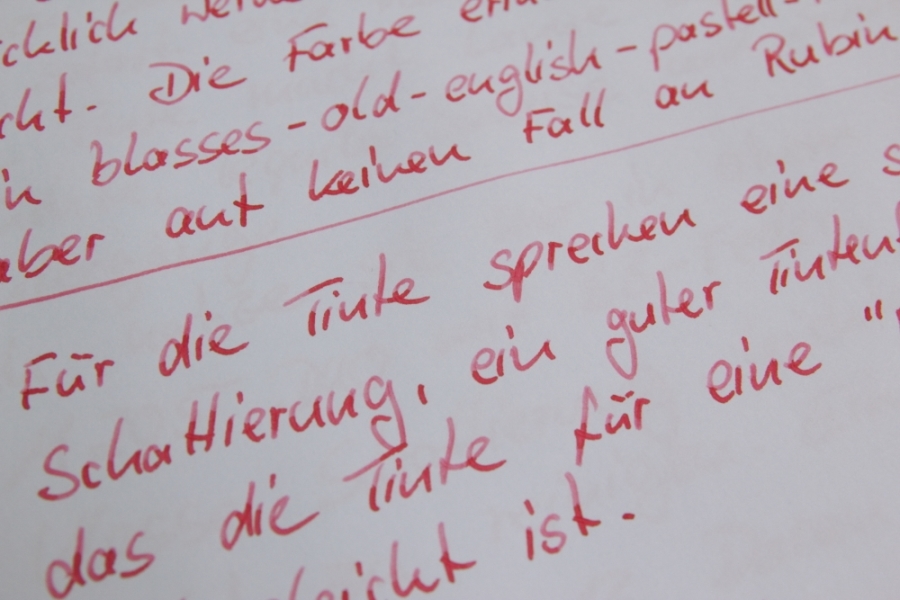 Die Farbe
blasses-old-english-pastell-
aber auf keinen Fall an Rubin
Für die Tinte sprechen eine
Schattierung, ein guter
das die Tinte für eine "
ist.